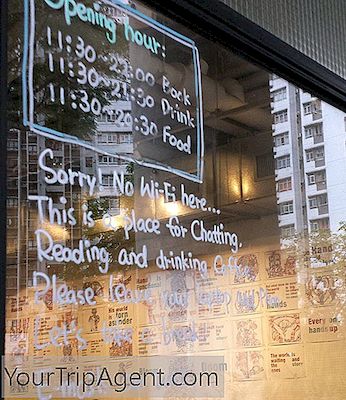 Opening hour:
11:30~22:00 Book
11:30~21:30 Drink
11:30~20:30 Food
Sorry! No Wi-Fi here...
This is a place for Chatting,
Reading and drinking Coffee
Please leave your
Let's take a break
Hand
Hands
His world is torn asunder
Every one hands up
The work is waiting the ones
YourTripAgent.com